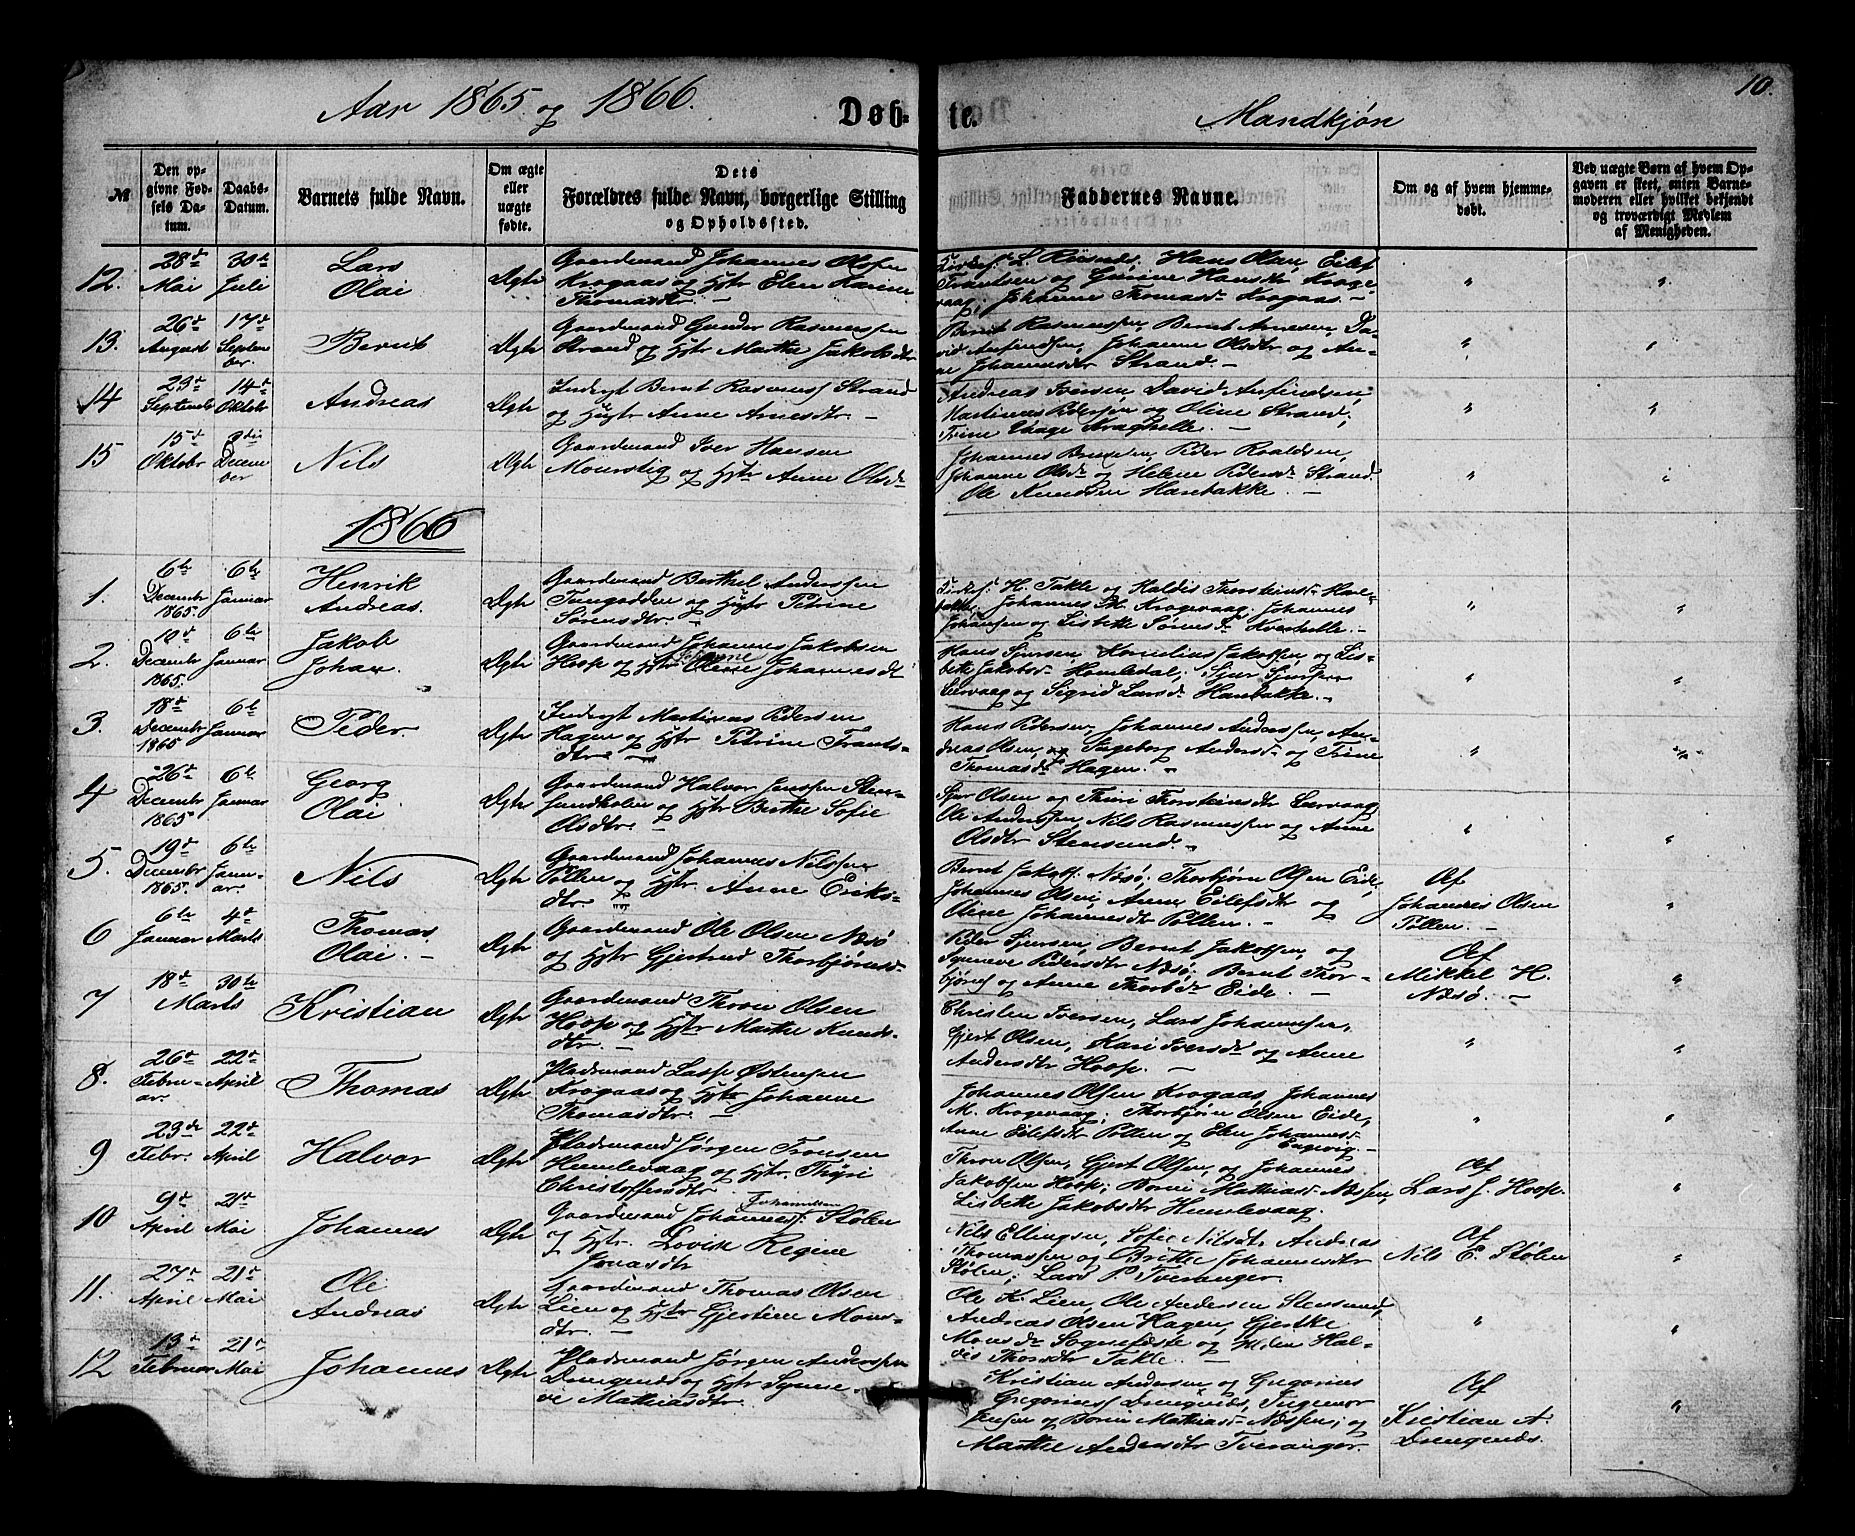 10.
Aar 1865 og 1866.
Døb-
te.
Mandkjøn
№
Den op-
givne Fød-
sels Da-
tum.
Daabs-
Datum.
Barnets fulde Navn.
Om ægte
eller
uægte
fødte.
Dets
Forældres fulde Navn, borgerlige Stilling
og Opholdssted.
Faddernes Navne.
Om og af hvem hjemme-
døbt.
Ved uægte Børn af hvem Op-
gaven er skeet, enten Barne-
moderen eller hvilket bekjendt
og troværdigt Medlem
af Menigheden.
12.
28de
Mai
30te
Juli
Lars
Olai
Ægte
Gaardmand Johannes Olsen
Krogaas og Hstr Elen Karine
Thomasdtr. —
L. Risnes, Hans Olsen, Eilef
Frantsen og Gurine Hansdtr Kroge-
vaag, Johanne Thomasdr Krogaas. —
"
"
13.
26de
August
17de
Septem
ber
Bernt
Ægte
Gaardmand Gunder Rasmussen
Strand og Hstr Marthe Jakobsdtr
Bernt Rasmussen, Bernt Arnesen, Da-
vid Anfindsen, Johanne Olsdtr og An-
ne Johannesdtr Strand. —
"
"
14
23de
Septembr
14de
Oktobr
Andreas
Ægte
Inderst Bernt Rasmuss Strand
og Hstr Anne Arnesdtr. —
Andreas Iversen, David Anfindsen,
Martinus Pedersen og Oline Strand,
Trine Vaage Kraghelle. —
"
"
15
15de
Oktobr
3die
Decem
ber
Nils
Ægte
Gaardmand Iver Hansen
Mourstig og Hstr Anne Olsdr
Johannes Berntsen, Peder Roaldsen,
Johanne Olsdr og Helene Pedersdr Strand.
Ole Knudsen Hanbakke. —
"
"
1866
1.
6te
Decembr
1865.
6te
Januar
Henrik
Andreas.
Ægte
Gaardmand Berthel Anderssen
Tungodden og Hstr Petrine
Sørensdtr. —
H. Takle og Haldis Thorsteinsdr Han-
bakke, Johannes M. Krogevaag, Johannes
Johansen og Lisbette Sørensdr Kverhelle. —
"
"
2.
10de
Decembr
1865.
6te
Januar
Jakob
Johan.
Ægte
Gaardmand Johannes Jakobsen
Hoop og Hstr Oline Johannesdt
Hans Sjursen, Kornelius Jakobsen og Lis-
bette Jakobsdr Humledal, Sjur Sjursen
Leervaag og Sigrid Larsdr Hanbakke. —
"
"
3.
18de
Decembr
1865
6te
Januar
Peder
Ægte
Inderst Martinus Pedersen
Hagen og Hstr Petrine Frants-
dtr. —
Hans Pedersen, Johannes Anderssen, An-
dreas Olsen, og Ingeborg Andersdr og Trine
Thomasdr Hagen. —
"
"
4
26de
Decembr
1865
6te
Januar
Georg
Olai
Ægte
Gaardmand Halvor Jenssen Sten-
sundholm og Hstr Birthe Sofie
Olsdtr. —
Sjur Olsen og Thuri Thorsteinsdtr Leervaag,
Ole Anderssen, Nils Rasmussen og Anne
Olsdtr Stensund. —
"
"
5.
19de
Decembr
1865.
6te
Janu-
ar.
Nils
Ægte
Gaardmand Johannes Nilssen
Pollen og Hstr. Anne Eriks-
dtr. —
Bernt Jakobs. Nesø, Thorbjørn Olsen Eide,
Johannes Olsen, Anne Eilefsdtr og
Oline Johannesdtr Pollen. —
Af
Johannes Olsen
Pollen. —
"
6
6te
Januar
4de
Marts
Thomas
Olai. —
Ægte
Gaardmand Ole Olsen Nesø
og Hstr Gjertrud Thorbjørnsd.
Peder Sjursen, Bernt Jakobsen, og
Synneve Pedersdtr Nesø, Bernt Thor-
bjørns og Anne Thorbdr Eide. —
Af
Mikkel H.
Nesø. —
"
7
18de
30te
Marts
Kristian
Ægte
Gaardmand Thron Olsen
Hoop og Hstr Marthe Knuds-
dtr. —
Christen Iversen, Lars Johannessen,
Gjert Olsen, Kari Iversdr og Anne
Andersdtr Hoop. —
"
"
8.
26de
Febru-
ar.
22de
April
Thomas
Ægte
Pladsmand Lasse Østensen
Krogaas og Hstr Johanne
Thomasdtr. —
Johannes Olsen Krogaas, Johannes
M. Krogevaag, Thorbjørn Olsen Eide,
Anne Eilefsdtr Pollen og Elen Johannesd.
Engevig. —
"
"
9
23de
Febr.
22de
April
Halvor
Ægte
Pladsmand Jørgen Tronsen
Humlevaag og Hstr. Thyri
Christoffersdtr.
Thron Olsen, Gjert Olsen, og Johannes
Jakobsen Hoop; Borni Mathiasdr Nessen,
Lisbette Jakobsdtr Humlevaag.
Af
Lars J. Hoop.
"
10
9de
April
21de
Mai
Johannes
Ægte
Johannessen
Gaardmand Johannes Stølen
og Hstr. Lovise Regine
Jonasdtr
Nils Ellingsen, Sofie Nilsdtr. Andreas
Thomassen og Britte Johannesdtr
Stølen; Lars P. Tveranger.
Af
Nils E. Stølen
"
11.
27de
April
21de
Mai
Ole
Andreas
Ægte
Gaardmand Thomas Olsen
Lien og Hstr Gjertine Mons-
dtr. —
Ole K. Lien, Ole Andersen Stensund,
Andreas Olsen Hagen, Gjertke
Monsdr Sognefæste og Helen Hal-
dis Thorsdtr Takle. —
"
"
12
13de
Februar
21de
Mai
Johannes
Ægte
Pladsmand Jørgen Anderssen
Dingenæs og Hstr Synne-
ve Mathiasdtr.
Kristian Andersen og Gregorius
Gregoriuss Dingenæs, Ingemor
Jensen og Borni Mathiasdr Nessen; og
Marthe Andersdtr Tveranger.
Af
Kristian A.
Dingenæs.
"